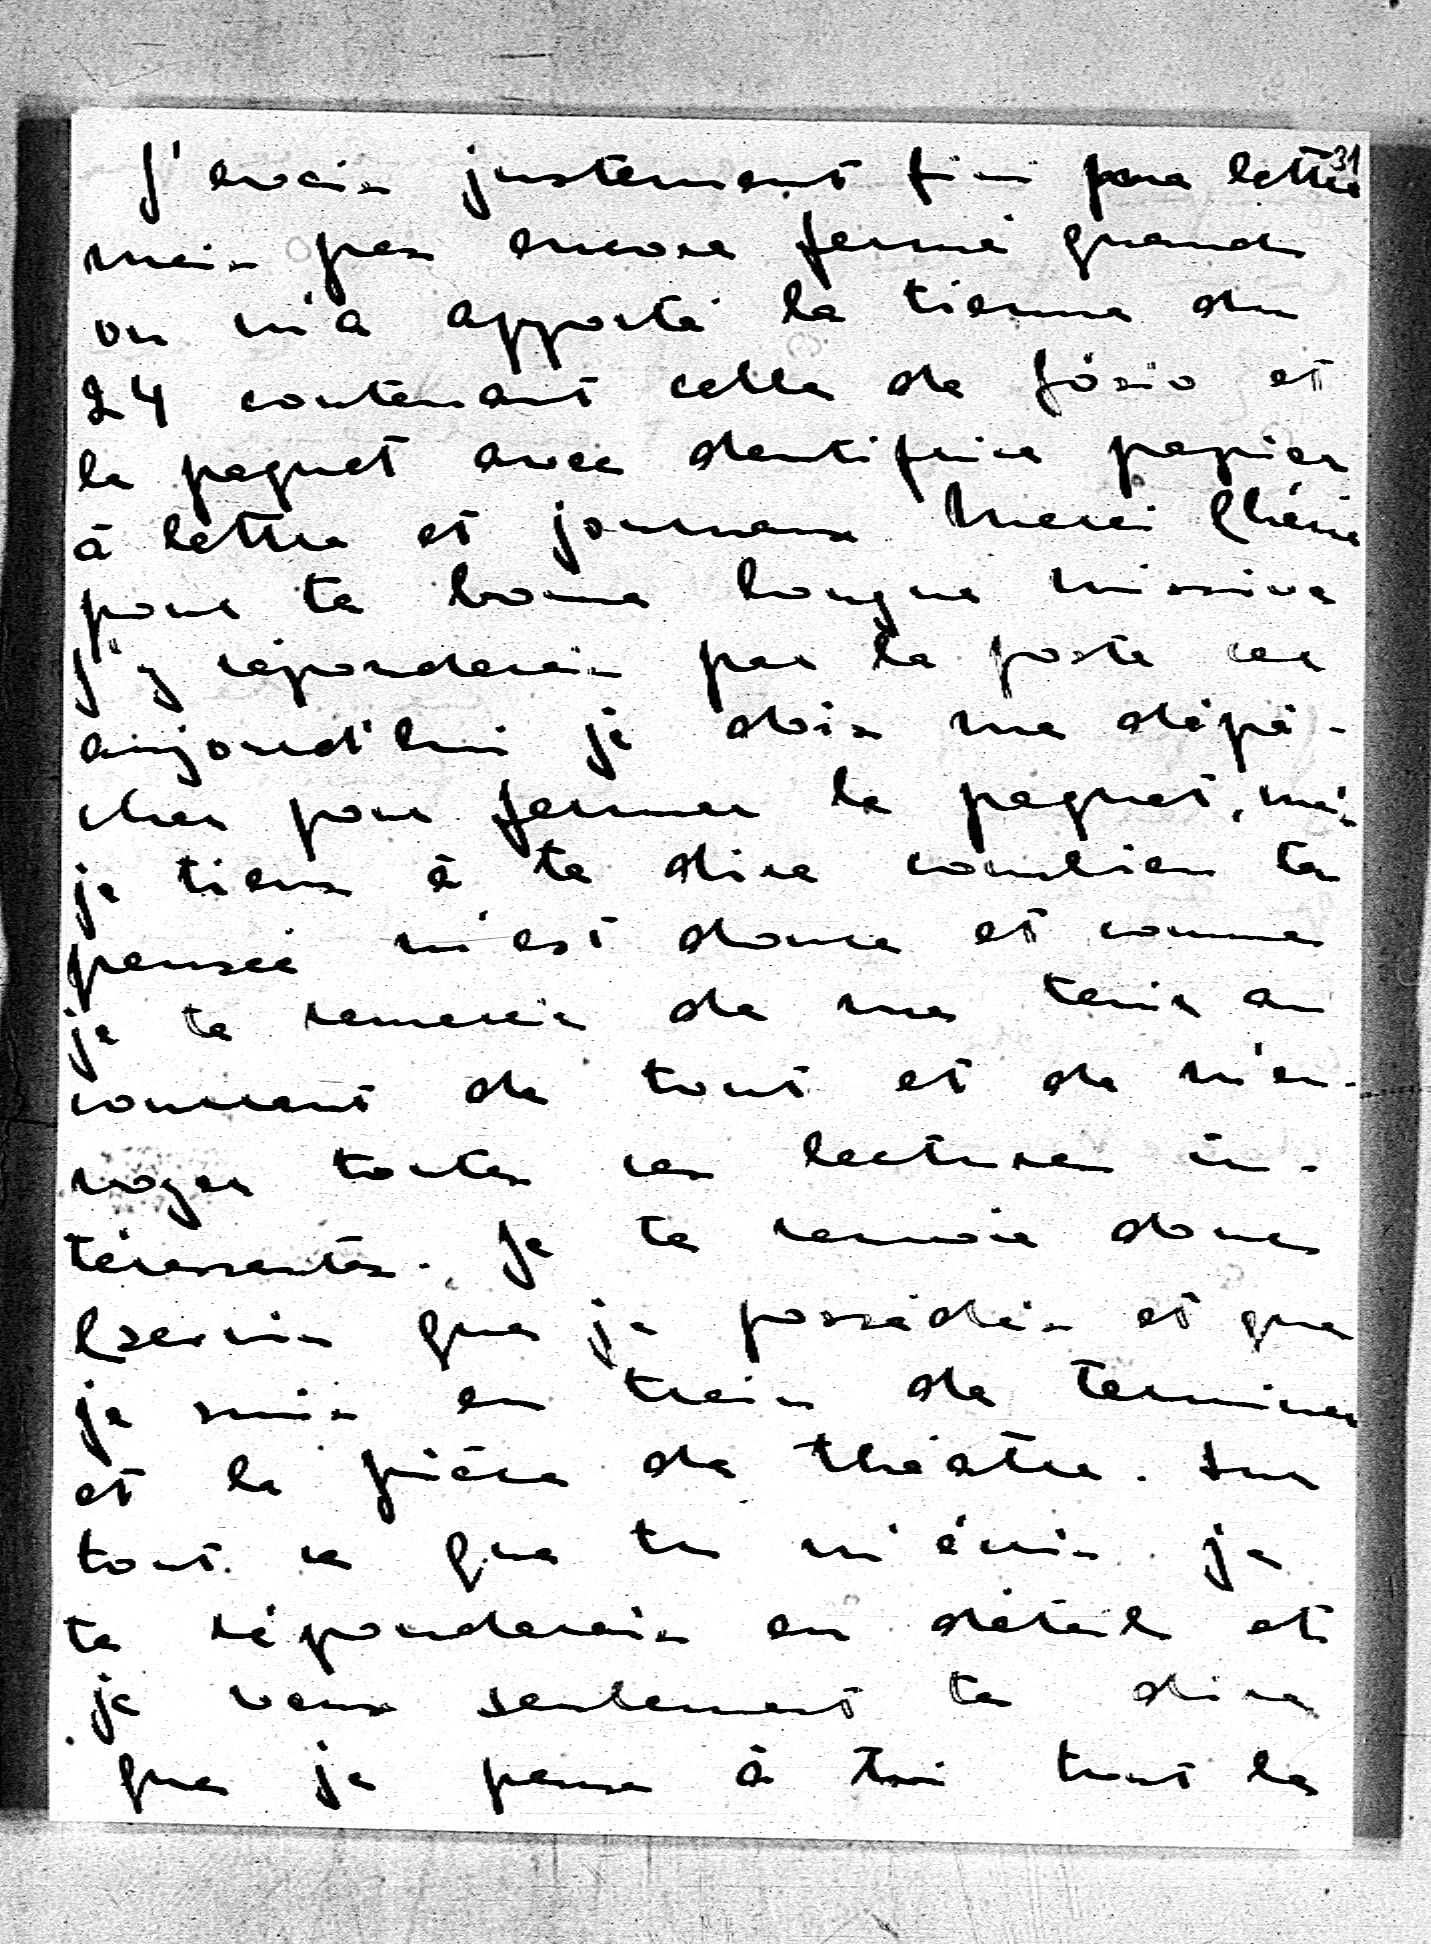 31
J'avais justement fini ma lettre
mais pas encore fermé quand
on m'a apporté la tienne du
24 contenant celle de Józio et
le paquet avec dentifrice papier
à lettre et journaux Merci Chérie
pour ta bonne longue missive
j'y réponderais par la poste car
aujourd'hui je dois me dépê-
cher pour fermer le paquet, mais
je tiens à te dire combien ta
pensée m'est douce et comme
je te remercie de me tenir au
courant de tout et de m'en-
voyer toutes ces lectures in-
téressantes. Je te renvoie donc
que je possédais et que
je suis en train de terminer
et la pièce de théâtre. Sur
tout ce que tu m'écris je
te réponderais en détail et
je veux seulement te dire
que je pense à toi tout le